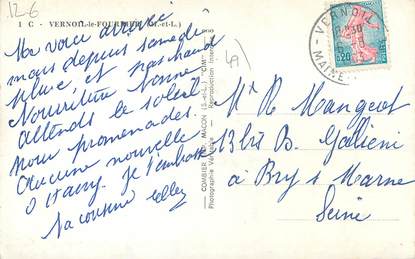 12-6
1 C - VERNOIL-le-FOURRIER (M.-et-L.)
Me voici arrivée
mais depuis samedi
pluie, et pas chaud
Nourriture bonne
Attends le soleil
pour promenades.
Aucune nouvelle
Je t'embrasse
Ta cousine
49
COMBIER IMP. MACON (S.-et-L.) "CIM"
Photographie Véritable - Reproduction Interdite
VERNOIL
MAINE
0,20
Mr R Mangeot
13 bis B. Galieni
à Bry s Marne
Seine